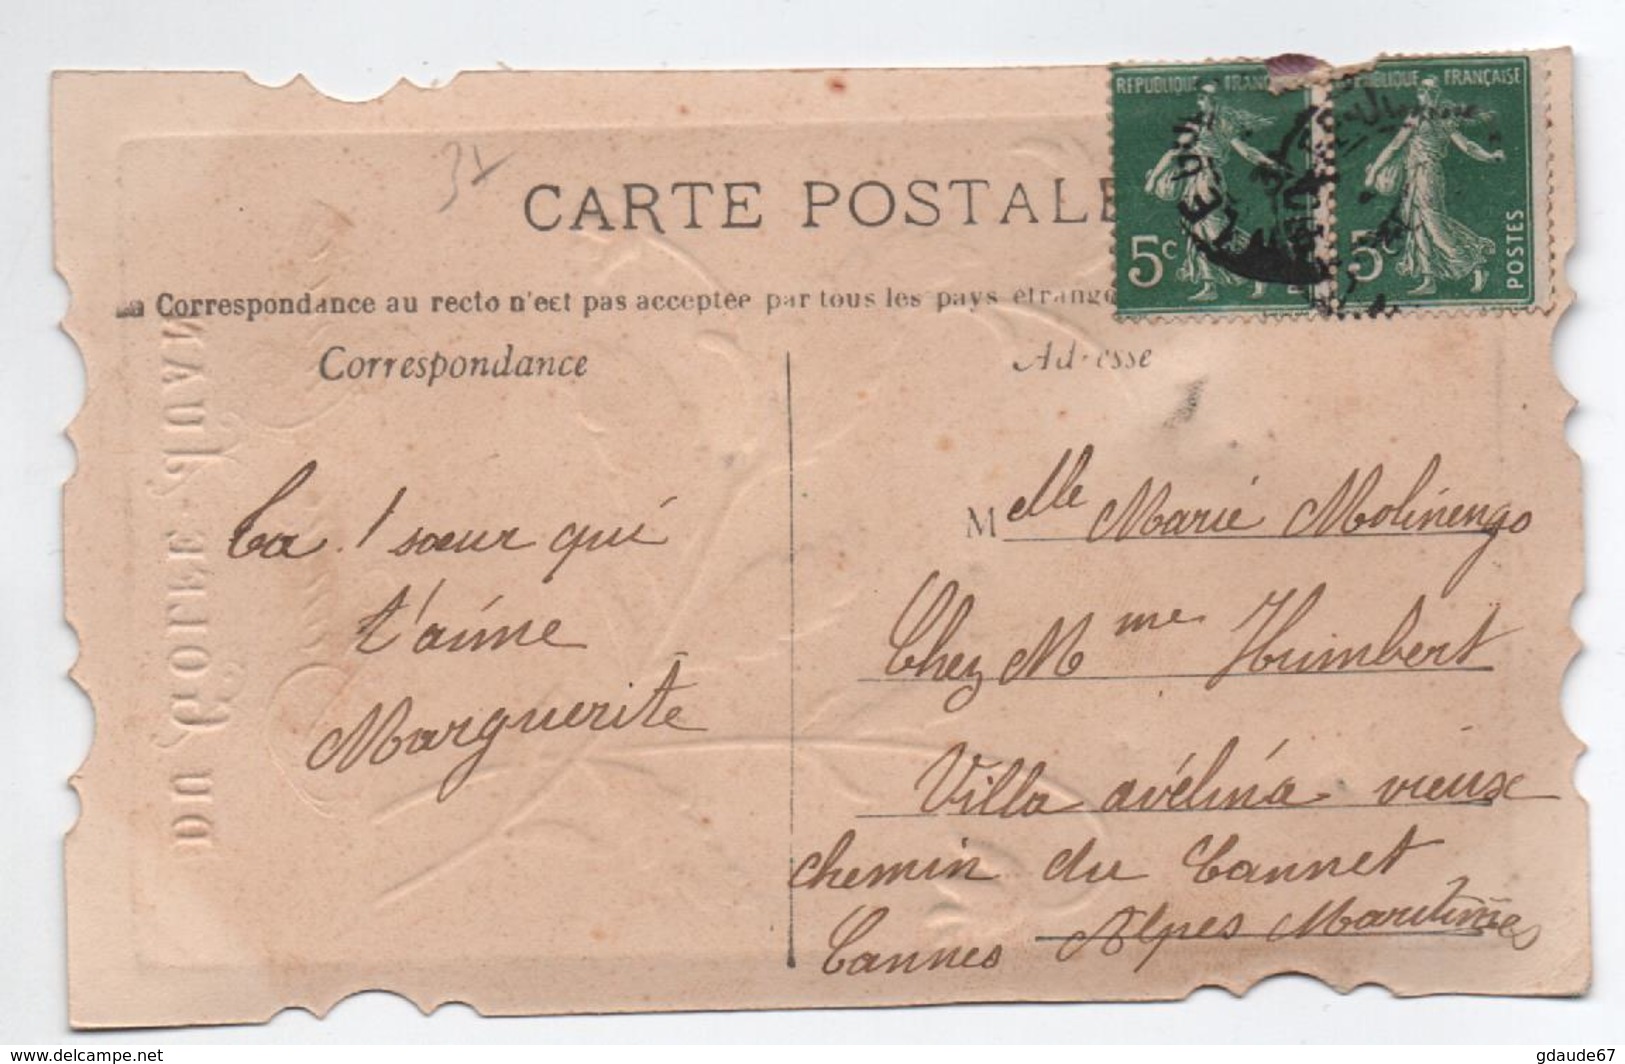 REPUBLIQUE FRANÇAISE
REPUBLIQUE FRANÇAISE
5c
5c
POSTES
31
CARTE POSTALE
La Correspondance au recto n'est pas acceptée par tous les pays étrangers
Correspondance
Adresse
Ta ! sœur qui
t'aime
Marguerite
Melle Marie Molinengo
Chez Mme Humbert
Villa avélina vieux
chemin du Cannet
Cannes Alpes Maritimes
www.delcampe.net
gdaude67